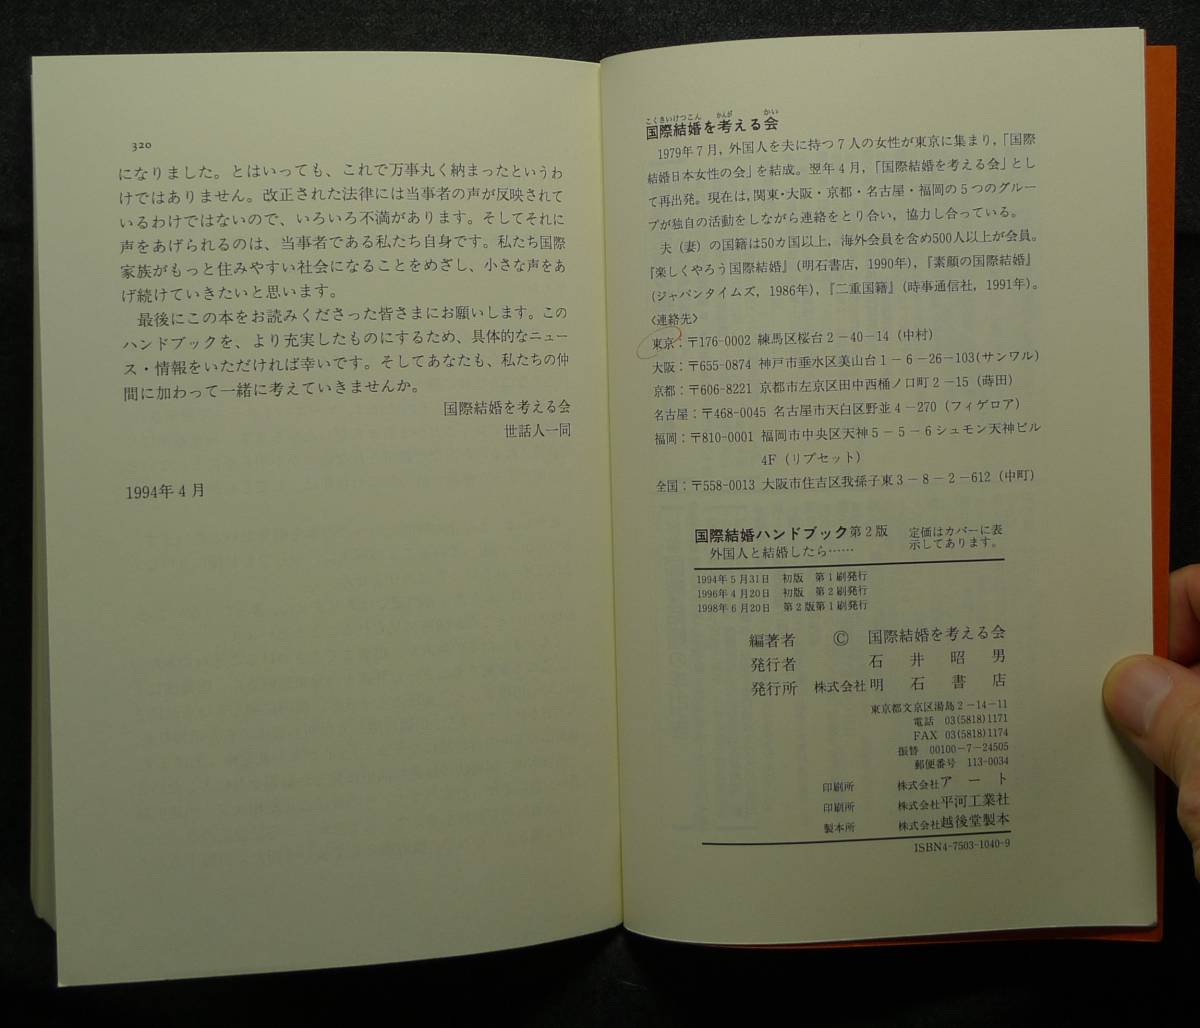 320
になりました。とはいっても、これで万事丸く納まったというわ
けではありません。改正された法律には当事者の声が反映されて
いるわけではないので、いろいろ不満があります。そしてそれに
声をあげられるのは、当事者である私たち自身です。私たち国際
家族がもっと住みやすい社会になることをめざし、小さな声をあ
げ続けていきたいと思います。
最後にこの本をお読みくださった皆さまにお願いします。この
ハンドブックを、より充実したものにするため、具体的なニュー
ス・情報をいただければ幸いです。そしてあなたも、私たちの仲
間に加わって一緒に考えていきませんか。
国際結婚を考える会
世話人一同
1994年4月
こくさいけつこん かんが かい
国際結婚を考える会
1979年7月，外国人を夫に持つ7人の女性が東京に集まり，「国際
結婚日本女性の会」を結成。翌年4月，「国際結婚を考える会」とし
て再出発。現在は，関東・大阪・京都・名古屋・福岡の5つのグルー
プが独自の活動をしながら連絡をとり合い，協力し合っている。
夫（妻）の国籍は50カ国以上，海外会員を含め500人以上が会員。
『楽しくやろう国際結婚』（明石書店，1990年），『素顔の国際結婚』
（ジャパンタイムズ，1986年），『二重国籍』（時事通信社，1991年）。
〈連絡先〉
東京：〒176-0002 練馬区桜台2－40－14（中村）
大阪：〒655-0874 神戸市垂水区美山台1－6－26－103(サンワル)
京都：〒606-8221 京都市左京区田中西樋ノ口町2－15（蒔田）
名古屋：〒468-0045 名古屋市天白区野並4－270（フィゲロア）
福岡：〒810-0001 福岡市中央区天神5－5－6シュモン天神ビル
4F（リブセット）
全国：〒558-0013 大阪市住吉区我孫子東3－8－2－612（中町）
国際結婚ハンドブック第2版
外国人と結婚したら……
定価はカバーに表
示してあります。
1994年5月31日 初版 第1刷発行
1996年4月20日 初版 第2刷発行
1998年6月20日 第2版第1刷発行
編著者 © 国際結婚を考える会
発行者 石井昭男
発行所 株式会社 明石書店
東京都文京区湯島2－14－11
電話 03(5818)1171
FAX 03(5818)1174
振替 00100－7－24505
郵便番号 113-0034
印刷所 株式会社アート
印刷所 株式会社平河工業社
製本所 株式会社越後堂製本
ISBN4-7503-1040-9